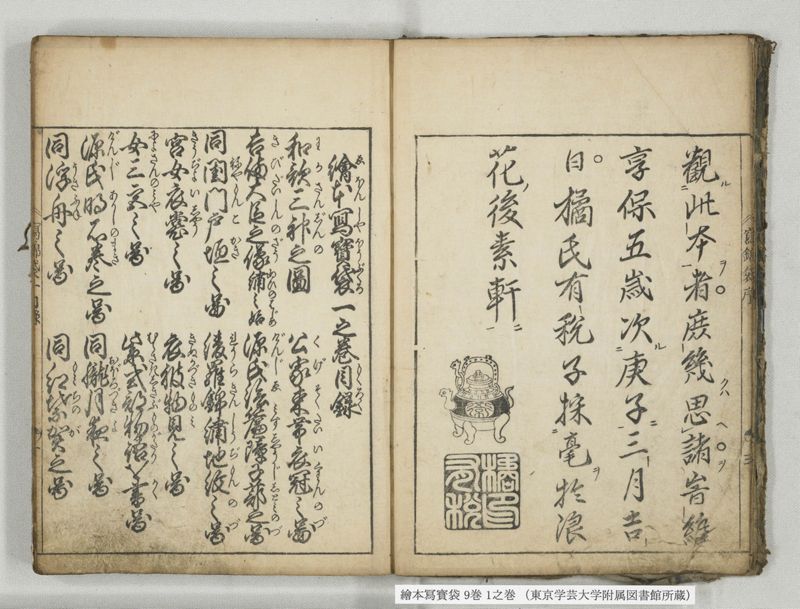 觀此本者庶幾思諸旹維
享保五歳次庚子三月吉
日橘氏有税子採毫於浪
花後素軒
橘氏有税
繪本寫寶袋一之巻目録
和歌三神之圖 公家束帯衣冠之圖
吉備大臣之像繍之始 源氏絵簾障子蔀之圖
同圍門戸垣之圖 綾羅錦繍地紋之圖
宮女衣裳之圖 衣被物見之圖
女三宮之圖 紫式部物語ヲ書圖
源氏明石巻之圖 同朧月夜之圖
同浮舟之圖 同紅葉賀之圖
繪本寫寶袋 9巻 1之巻 （東京学芸大学附属図書館所蔵）